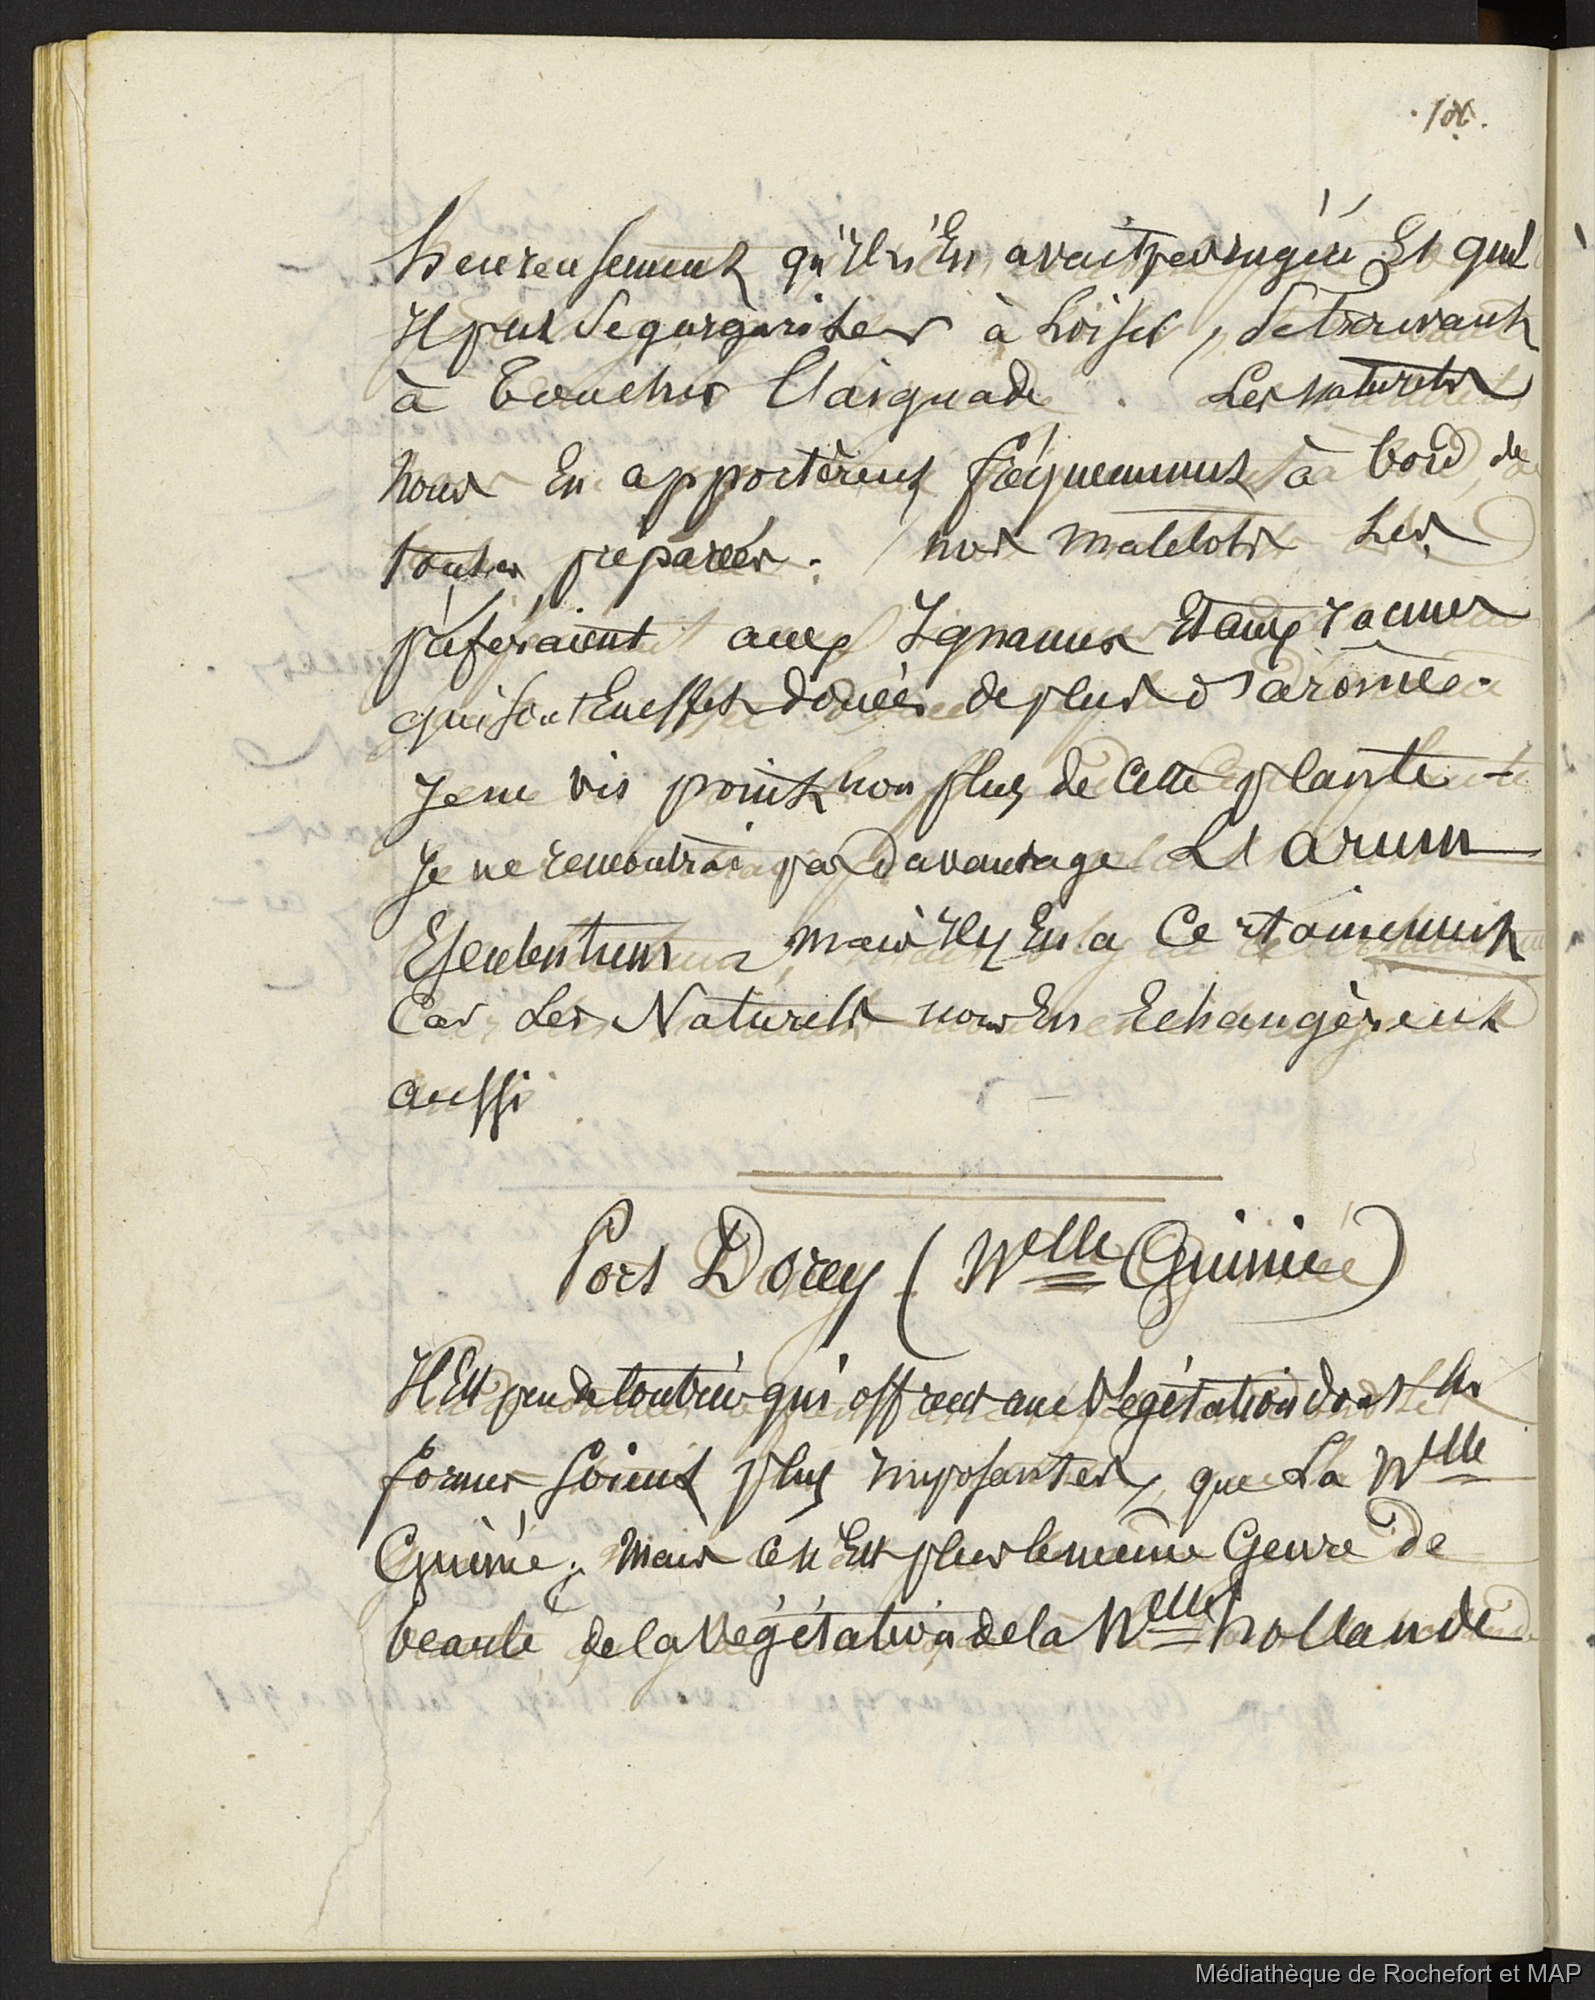 heureusement qu'il n'En avait pas ingéré Et quil
Il put se gargariser à loisir, se trouvant
à toucher l'aiguade. Les naturels
nous En apportèrent fréquemment à bord, de
toutes préparées. nos matelots les
préféraient aux Ignames Et aux Tacmes
qui sont En effet douées de plus d'arôme.
Je ne vis point non plus de cette plante -
Je ne rencontrai pas davantage Lt arum
Esculentum, mais Il y En a certainement
Car Les Naturels nous En Echangèrent
aussi
Port Dorey (Nelle Guinée)
Il Est peu de contrées qui offrent une Végétation dont les
formes soient plus imposantes, que La Nelle
Guinée; mais ce n'Est plus le même Genre de
beauté de la Végétation de la Nelle hollande
Médiathèque de Rochefort et MAP